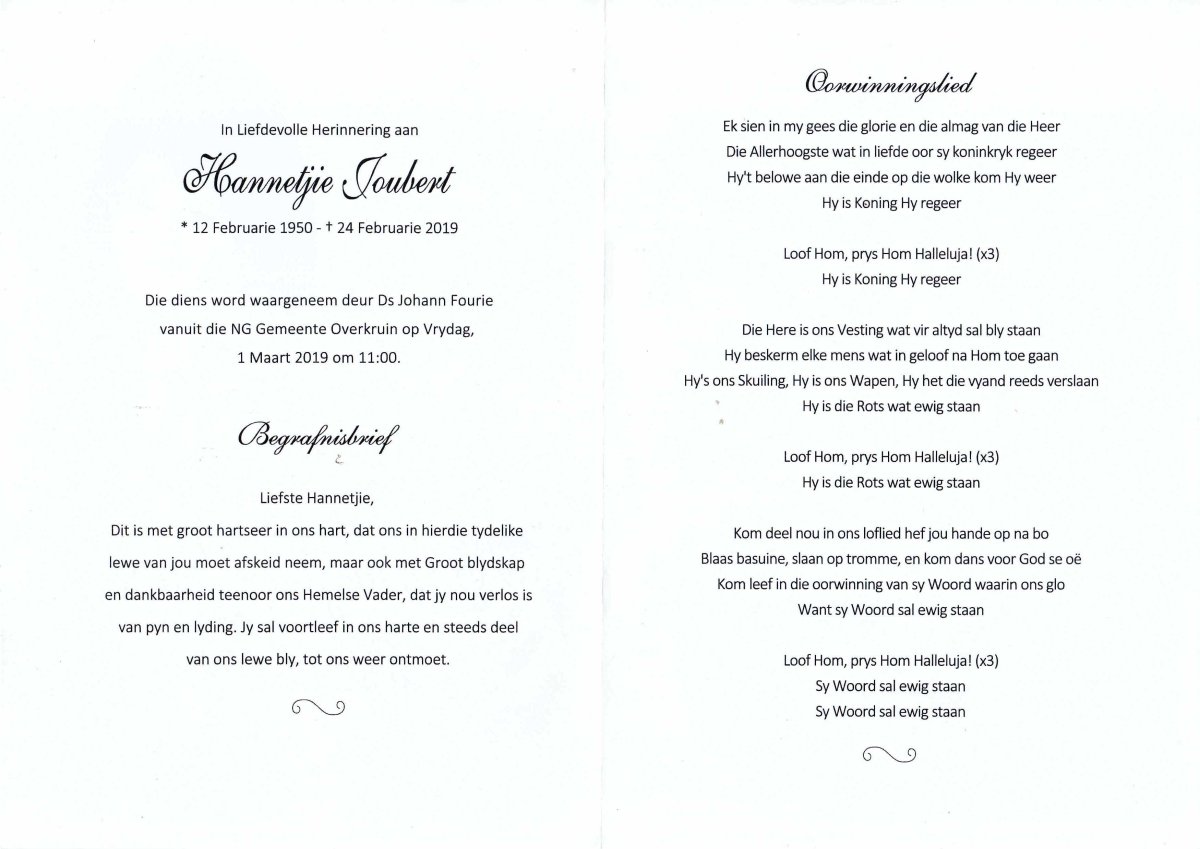 In Liefdevolle Herinnering aan
Hannetjie Joubert
* 12 Februarie 1950 - † 24 Februarie 2019
Die diens word waargeneem deur Ds Johann Fourie
vanuit die NG Gemeente Overkruin op Vrydag,
1 Maart 2019 om 11:00.
Begrafnisbrief
Liefste Hannetjie,
Dit is met groot hartseer in ons hart, dat ons in hierdie tydelike
lewe van jou moet afskeid neem, maar ook met Groot blydskap
en dankbaarheid teenoor ons Hemelse Vader, dat jy nou verlos is
van pyn en lyding. Jy sal voortleef in ons harte en steeds deel
van ons lewe bly, tot ons weer ontmoet.
Oorwinningslied
Ek sien in my gees die glorie en die almag van die Heer
Die Allerhoogste wat in liefde oor sy koninkryk regeer
Hy't belowe aan die einde op die wolke kom Hy weer
Hy is Koning Hy regeer
Loof Hom, prys Hom Halleluja! (x3)
Hy is Koning Hy regeer
Die Here is ons Vesting wat vir altyd sal bly staan
Hy beskerm elke mens wat in geloof na Hom toe gaan
Hy's ons Skuiling, Hy is ons Wapen, Hy het die vyand reeds verslaan
Hy is die Rots wat ewig staan
Loof Hom, prys Hom Halleluja! (x3)
Hy is die Rots wat ewig staan
Kom deel nou in ons loflied hef jou hande op na bo
Blaas basuine, slaan op tromme, en kom dans voor God se oë
Kom leef in die oorwinning van sy Woord waarin ons glo
Want sy Woord sal ewig staan
Loof Hom, prys Hom Halleluja! (x3)
Sy Woord sal ewig staan
Sy Woord sal ewig staan